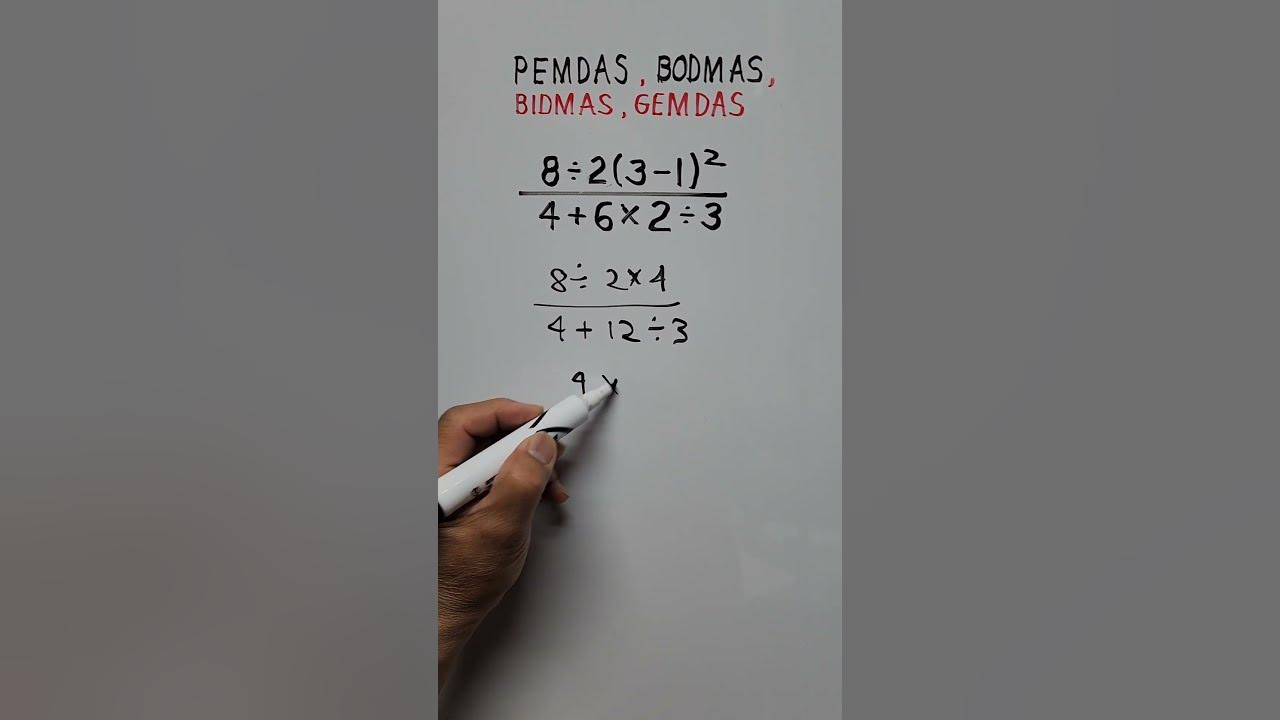 PEMDAS, BODMAS,
BIDMAS, GEMDAS
8÷2(3-1)²
4+6×2÷3
8÷ 2×4
4+12÷3
4 ×